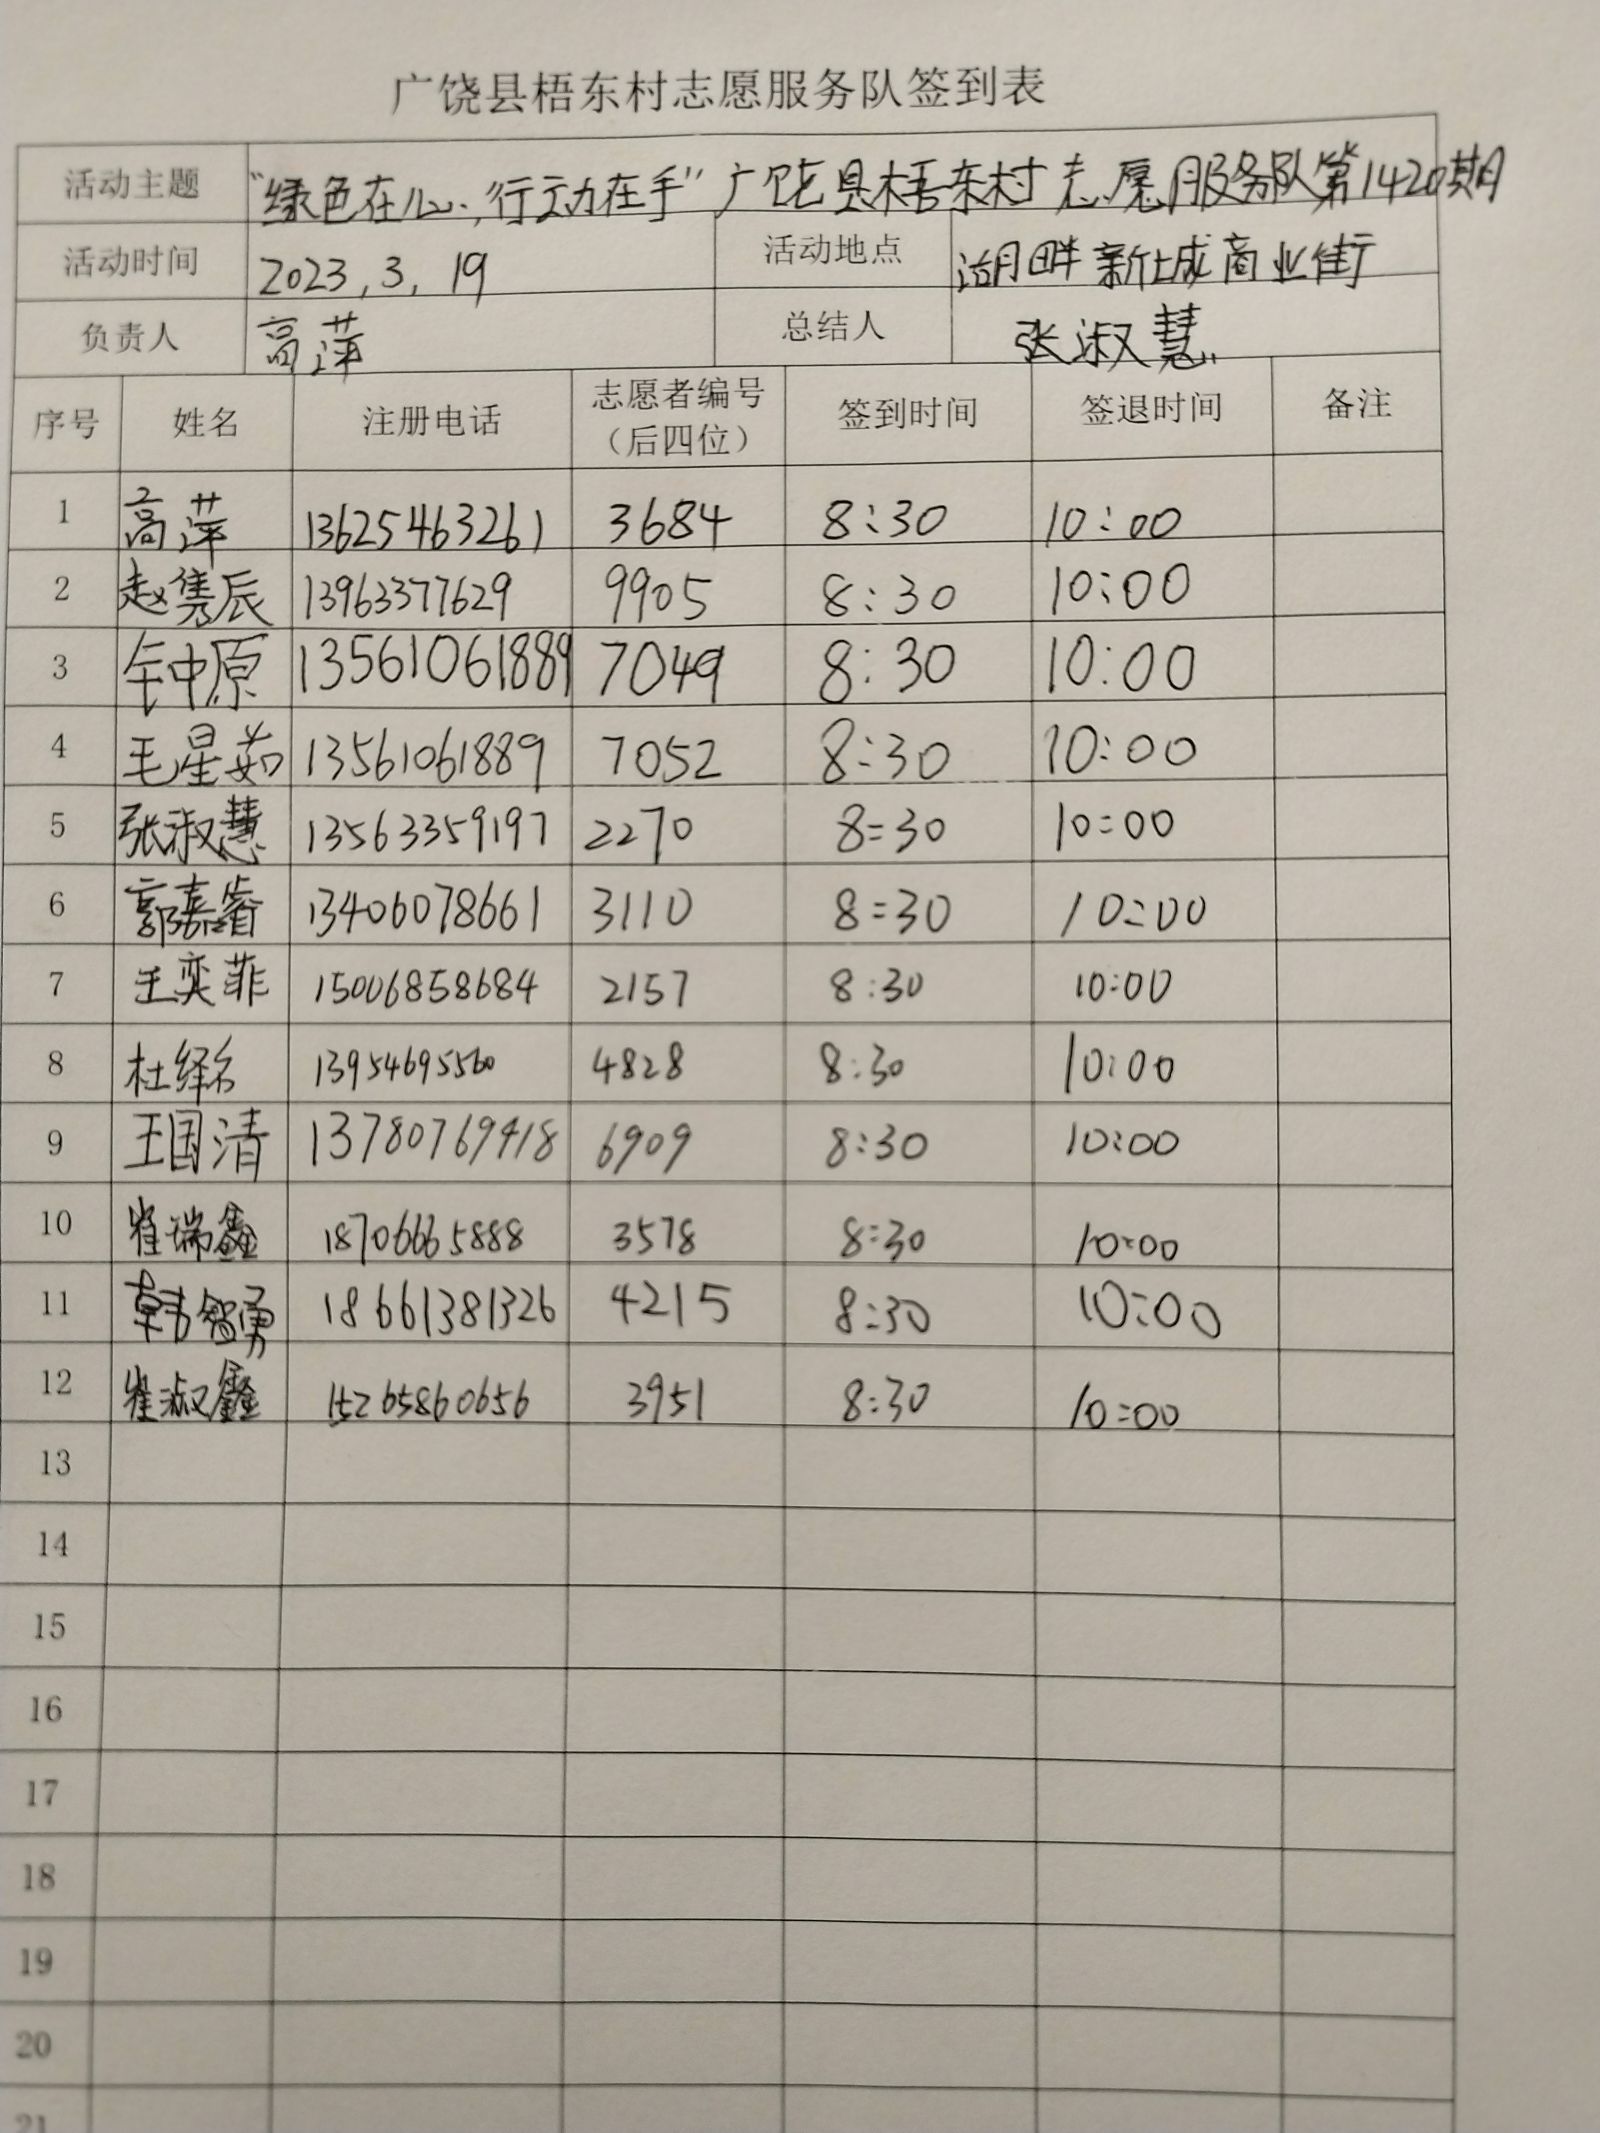 广饶县梧东村志愿服务队签到表
活动主题 "绿色在心,行动在手"广饶县梧东村志愿服务队第1420期
活动时间 2023,3,19 活动地点 湖畔新城商业街
负责人 高萍 总结人 张淑慧
序号 姓名 注册电话 志愿者编号（后四位） 签到时间 签退时间 备注
1 高萍 13625463261 3684 8:30 10:00
2 赵隽辰 13963377629 9905 8:30 10:00
3 中原 13561061889 7049 8:30 10:00
4 毛星茹 13561061889 7052 8:30 10:00
5 张淑慧 13563359197 2270 8:30 10:00
6 郭嘉睿 13406078661 3110 8:30 10:00
7 王奕菲 15006858684 2157 8:30 10:00
8 杜绎名 13954695560 4828 8:30 10:00
9 王国清 13780769418 6909 8:30 10:00
10 崔瑞鑫 18706665888 3578 8:30 10:00
11 韩智勇 18661381326 4215 8:30 10:00
12 崔淑鑫 15265860656 3951 8:30 10:00
13
14
15
16
17
18
19
20
21